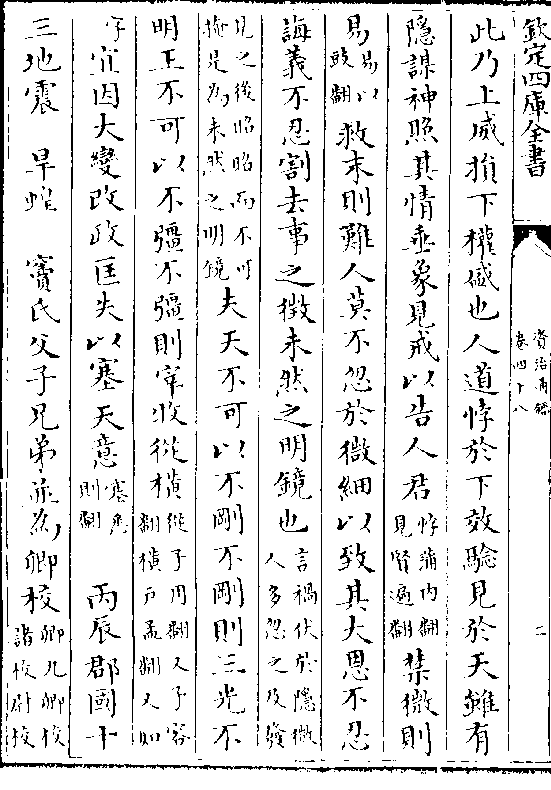 欽定四庫全書
資治通鑑
卷四十八
二
此乃上威損下權盛也人道悖於下效驗見於天雖有
隱謀神照其情垂象見戒以告人君悖蒲内翻見賢遍翻禁微則
易易以豉翻救末則難人莫不忽於微細以致其大恩不忍
誨義不忍割去事之後未然之明鏡也言禍伏於隱微人多忽之及發
見之後昭昭而不可掩是為未然之明鏡夫天不可以不剛不剛則三光不
明王不可以不彊不彊則宰牧從横從子用翻又子容翻横户孟翻又如
字宜因大變改政匡失以塞天意塞悉則翻 丙辰郡國十
三地震 旱蝗 竇氏父子兄弟並為卿校卿九卿校諸校尉校